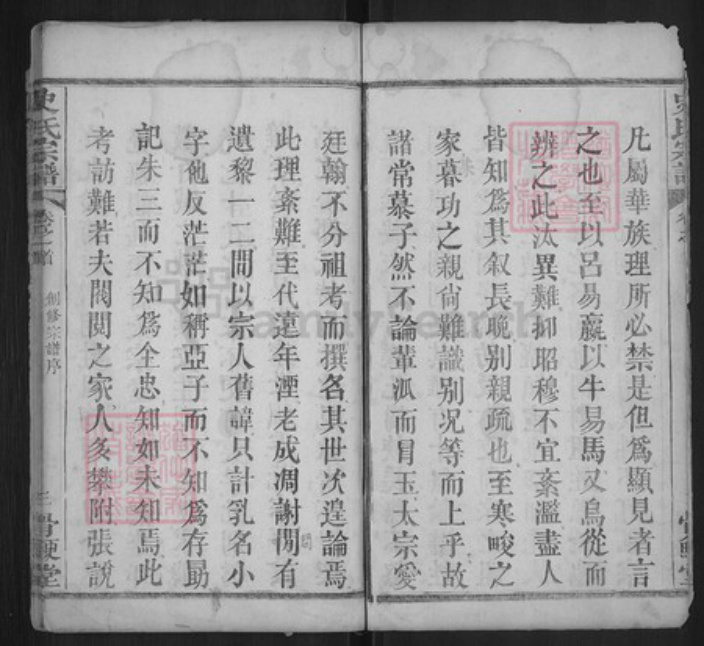 凡屬華族理所必禁是但爲顯見者言
之也至以呂易嬴以牛易馬又烏從而
辨之此汰異難抑昭穆不宜紊濫盡人
皆知爲其叙長晚别親疏也至寒畯之
家暮功之親尙難識别况等而上乎故
諸常慕子然不論輩派而冐玉太宗愛
廷翰不分祖考而撰名其世次遑論焉
此理紊難至代遠年湮老成凋謝閒有
遺黎一二間以宗人舊諱只計乳名小
字他反茫茫如稱亞子而不知爲存勗
記朱三而不知爲全忠知如未知焉此
考訪難若夫閥閱之家人多攀附張說
史氏宗譜
卷之首
創修宗譜序
三
骨鯁堂